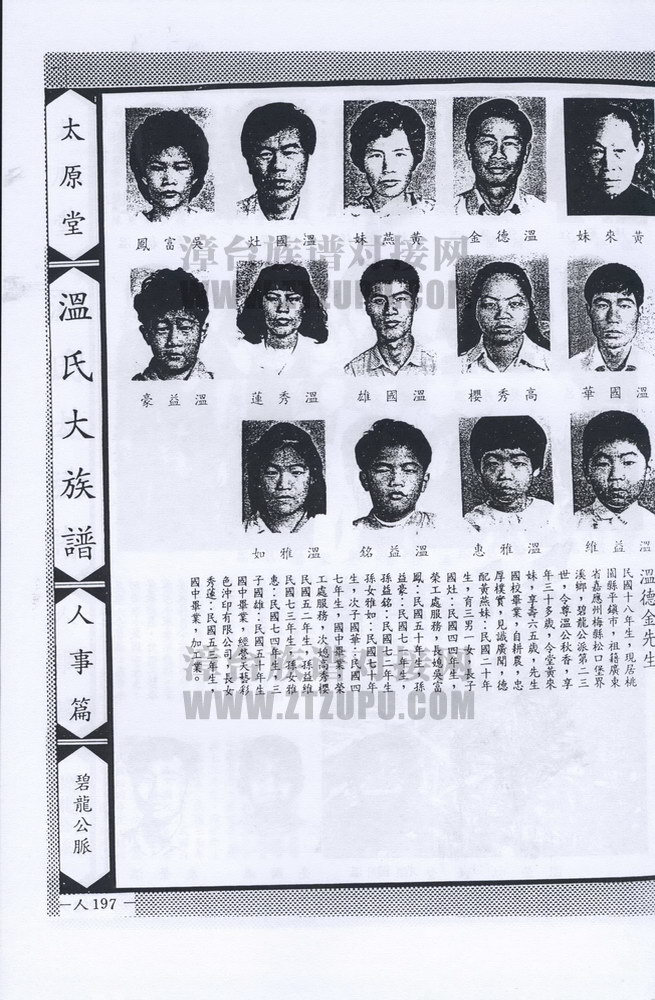 太原堂
溫氏大族譜
人事篇
碧龍公脈
人197
黃來妹
溫德金
黃燕妹
溫國灶
吳富鳳
溫國華
高秀櫻
溫國雄
溫秀蓮
溫益豪
溫益維
溫雅惠
溫益銘
溫雅如
溫德金先生
民國十八年生，現居桃
園縣平鎮市，祖籍廣東
省嘉應州梅縣松口堡界
溪鄉，碧龍公派第二三
世，令尊溫公秋香，享
年三十多歲，令堂黃來
妹，享壽六五歲，先生
國校畢業，自耕農，忠
厚樸實，見識廣闊，德
配黃燕妹：民國二十年
生，育三男一女，長子
國灶：民國四四年生，
榮工處服務，長媳吳富
鳳：民國五十年生，孫
益豪：民國七年生，
孫益銘：民國七年生，
孫女雅如：民國七十年
生，次子國華：民國四
七年生，國中畢業，榮
工處服務，次媳高秀櫻
民國五二年生，孫益維
民國七三年生，孫女雅
惠：民國七四年生，三
子國雄：民國五年生
國中畢業，經營天藝彩
色沖印有限公司，長女
秀蓮：民國五三年生，
國中畢業，加工業。
漳台族谱对接网
WWW.ZTZUPU.COM
漳台族谱对接网
WWW.ZTZUPU.COM